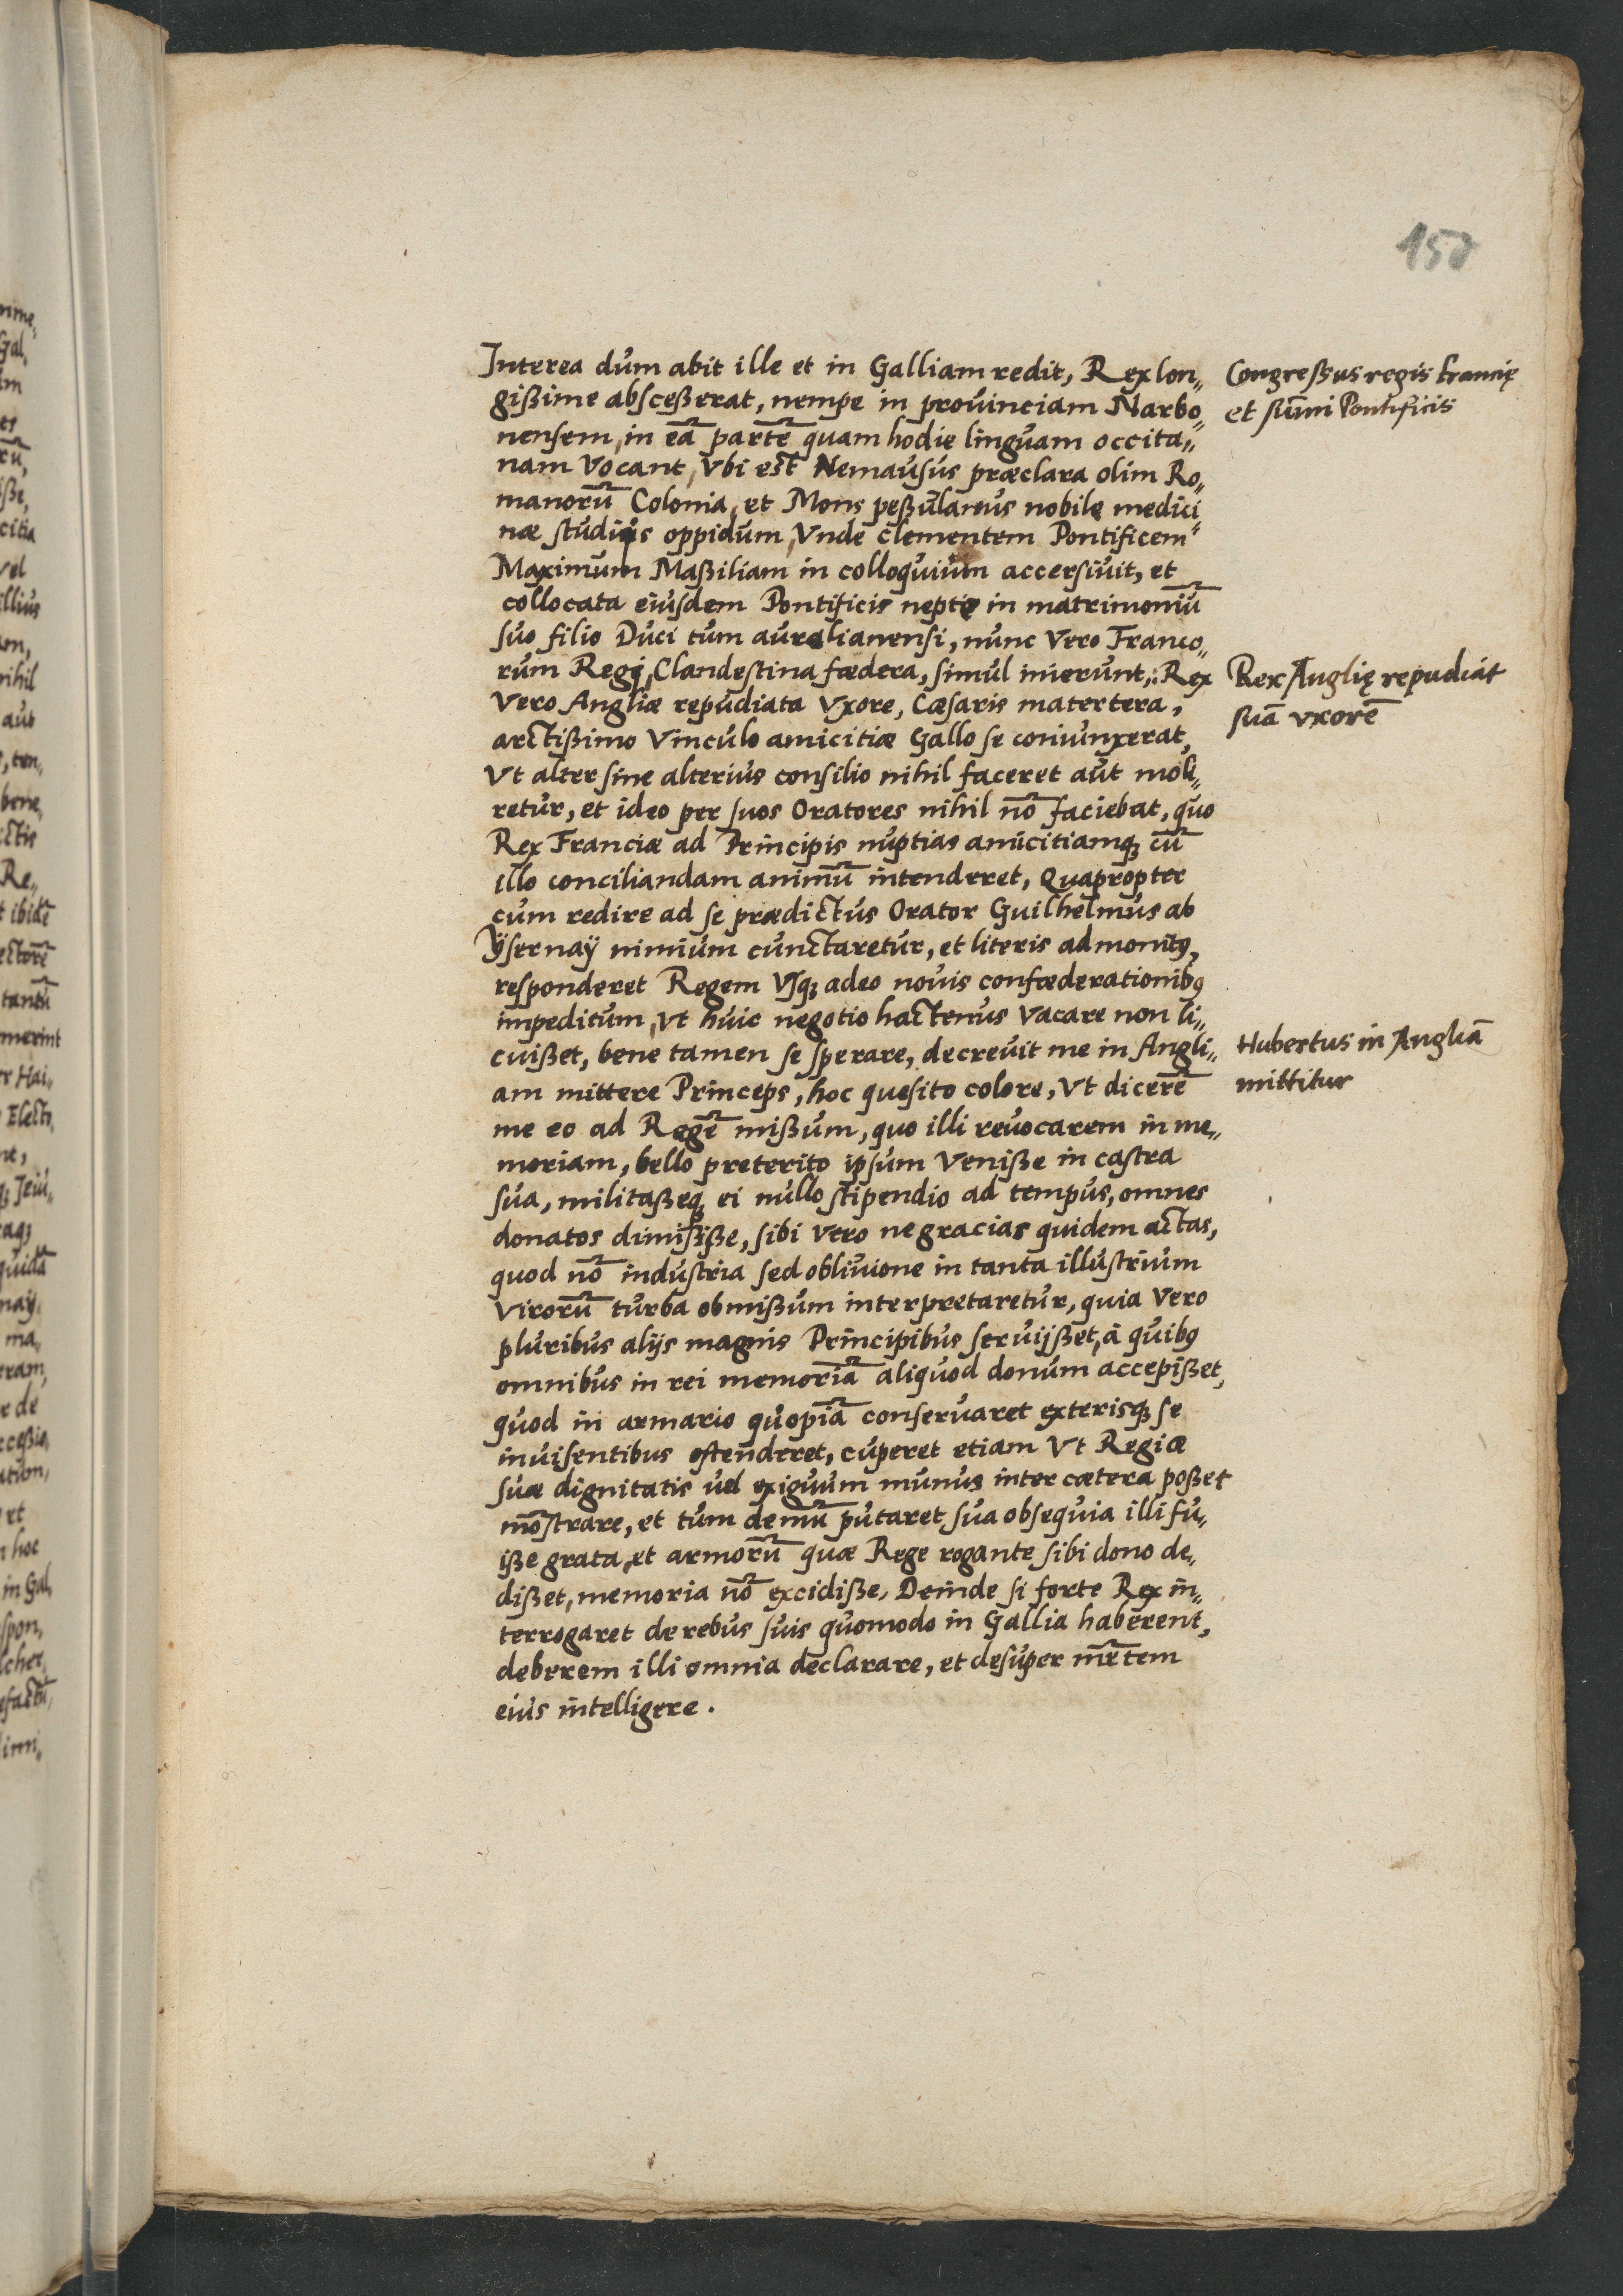 150
Interea dum abit ille et in Galliam redit, Rex lon„
gißime absceßerat, nempe in provinciam Narbo„
nensem, in eā partē quam hodie linguam occita„
nam Vocant, Vbi est Nemausus præclara olim Ro„
manorū Colonia, et Mons peßulanus nobile medici„
næ studijs oppidum, Vnde Clementem Pontificem
Maximum Maßiliam in colloquium accersiuit, et
collocata eiusdem Pontificis nepte in matrimoniū
suo filio Duci tum aurelianensi, nunc Vero Franco„
rum Regi, Clandestina fœdera, simul inierunt, Rex
Vero Angliæ repudiata Vxore, Cæsaris matertera,
arctißimo Vinculo amicitiæ Gallo se coniunxerat,
Vt alter sine alterius consilio nihil faceret aut moli„
retur, et ideo per suos Oratores nihil nō faciebat, quo
Rex Franciæ ad Principis nuptias amicitiamq₃ cū
illo conciliandam animū intenderet, Quapropter
cum redire ad se prædictus Orator Guilhelmus ab
Ÿsernaÿ nimium cunctaretur, et literis admonitꝰ,
responderet Regem Vsq₃ adeo nouis confœderationibꝰ
impeditum, Vt huic negotio hactenus Vacare non li„
cuißet, bene tamen se sperare, decreuit me in Angli„
am mittere Princeps, hoc quesito colore, Vt dicerē
me eo ad Regē mißum, quo illi reuocarem in me„
moriam, bello preterito ipsum Veniße in castra
sua, militaßeq₃ ei nullo stipendio ad tempus, omnes
donatos dimisiße, sibi Vero ne gracias quidem actas,
quod nō industria sed obliuione in tanta illustrium
Virorū turba obmißum interpretaretur, quia Vero
pluribus alijs magnis Principibus seruijßet, à quibꝰ
omnibus in rei memoriā aliquod donum accepißet,
quod in armario quopiā conseruaret exterisq₃ se
inuisentibus ostenderet, cuperet etiam Vt Regiæ
suæ dignitatis uel exiguum munus inter cætera poßet
mōstrare, et tum demū putaret sua obsequia illi fu„
iße grata, et armorū quæ Rege rogante sibi dono de„
dißet, memoria nō excidiße, Deinde si forte Rex in„
terrogaret de rebus suis quomodo in Gallia haberent,
deberem illi omnia declarare, et desuper mētem
eius intelligere.
Congreßus regis Francię
et sūmi Pontificis
Rex Anglię repudiat
suā vxorē
Hubertus in Angliā
mittitur